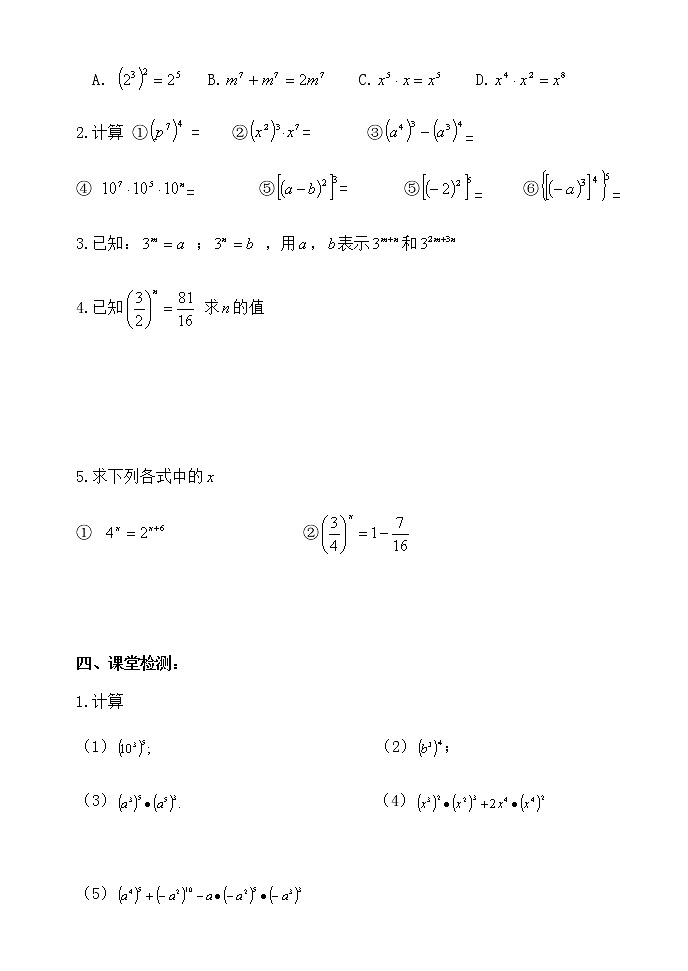 A. (2³)² = 2⁵ B. m⁷ + m⁷ = 2m⁷ C. x⁵ · x = x⁵ D. x⁴ · x² = x⁸
2.计算 ①(p⁷)⁴ = ②(x²)³·x⁷= ③(a⁴)³ − (a³)⁴=
④ 10⁷ · 10⁵ · 10ⁿ= ⑤[(a − b)²]³= ⑤[(− 2)²]⁶= ⑥{[(− a)³]⁴}⁵=
3.已知: 3ᵐ = a ;3ⁿ = b ,用a,b表示3ᵐ⁺ⁿ和3²ᵐ⁺³ⁿ
4.已知(3/2)ⁿ = 81/16 求n的值
5.求下列各式中的x
① 4ⁿ = 2ⁿ⁺⁶ ②(3/4)ⁿ = 1− 7/16
四、课堂检测:
1.计算
(1)(10³)⁵; (2)(b³)⁴;
(3)(a³)⁵•(a⁵)³. (4)(x³)²•(x²)³+2x⁴•(x⁴)²
(5)(a⁴)⁵+(−a²)¹⁰−a•(−a²)⁵•(−a³)³